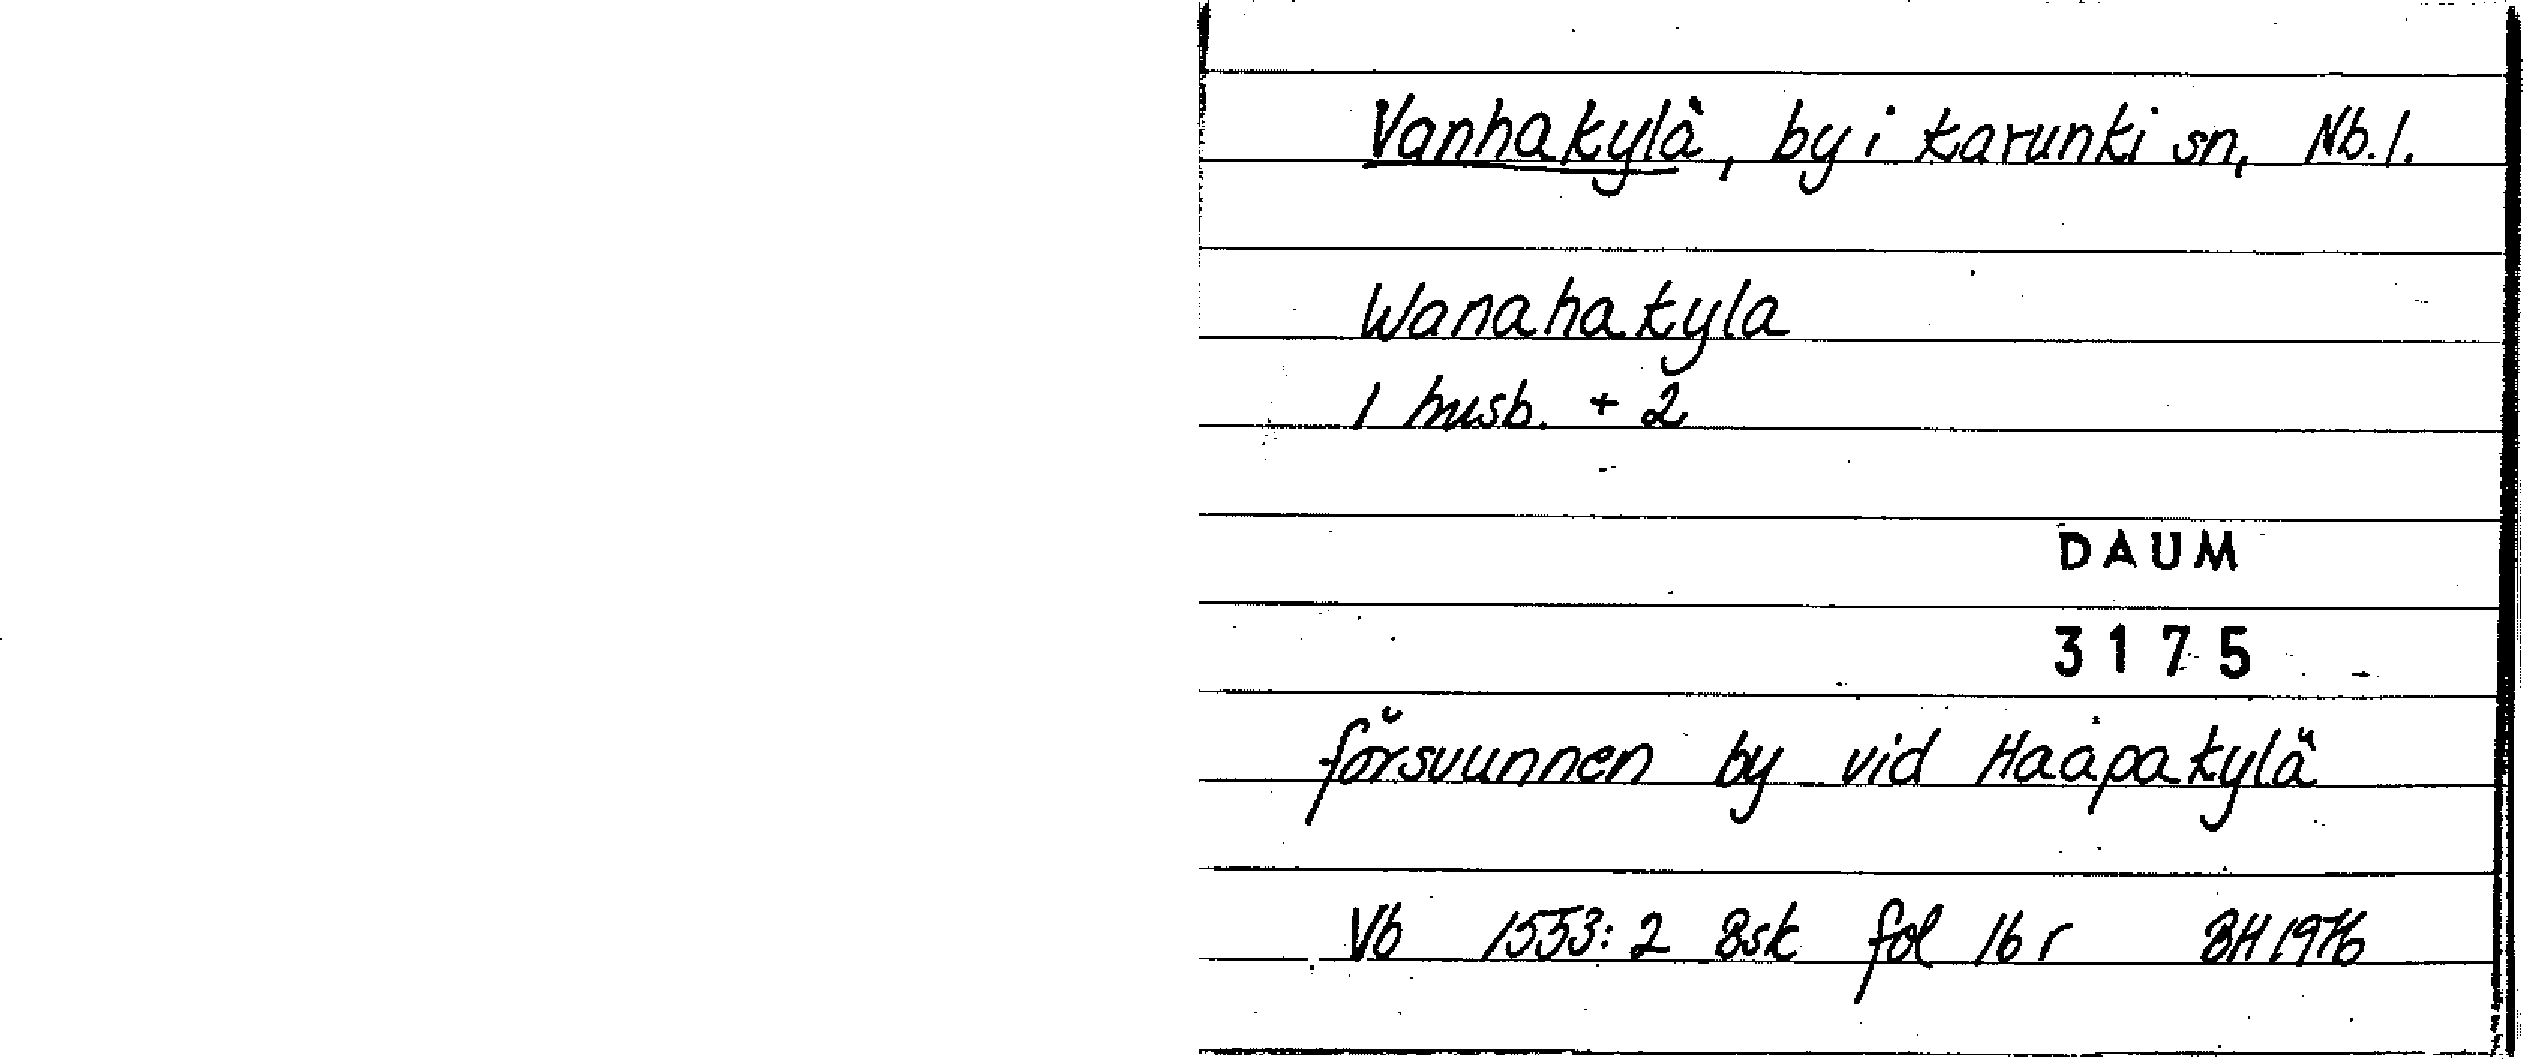 Vanhakylä, by i Karunki sn, Nb. l.
Wanahakyla
1 husb. + 2
DAUM
3175
försvunnen by vid Haapakylä
Vb 1553: 2 Bsk fol 16 r BH 1976